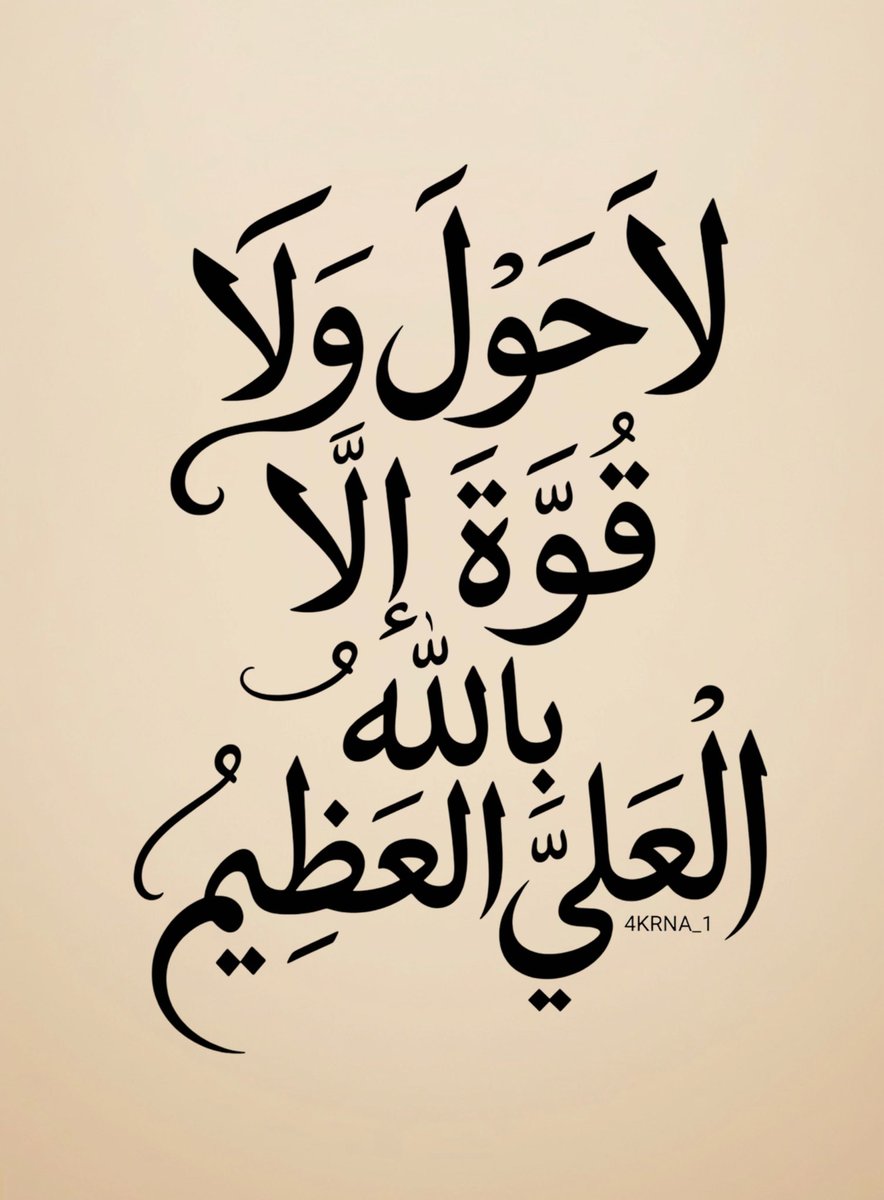 لاَ حَوْلَ وَلَا
قُوَّةَ إِلَّا
بِاللّٰهُ
الْعَليَّ العَظِيمُ
4KRNA_1